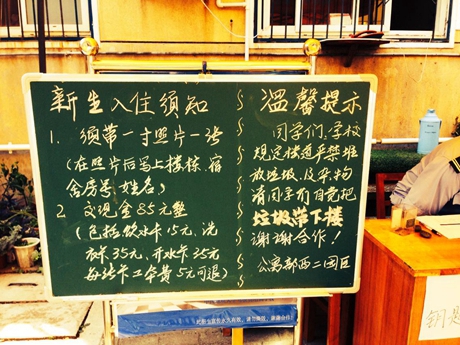 新生入住须知
1. 须带一寸照片一张
(在照片后写上楼栋、宿
舍房号、姓名)
2 交现金85元整
(包括饮水卡15元、洗
衣卡35元、开水卡25元
每张卡工本费5元可退)
温馨提示
同学们,学校
规定楼道严禁堆
放垃圾及杂物
请同学们自觉把
垃圾带下楼
谢谢合作!
公寓部西二园区